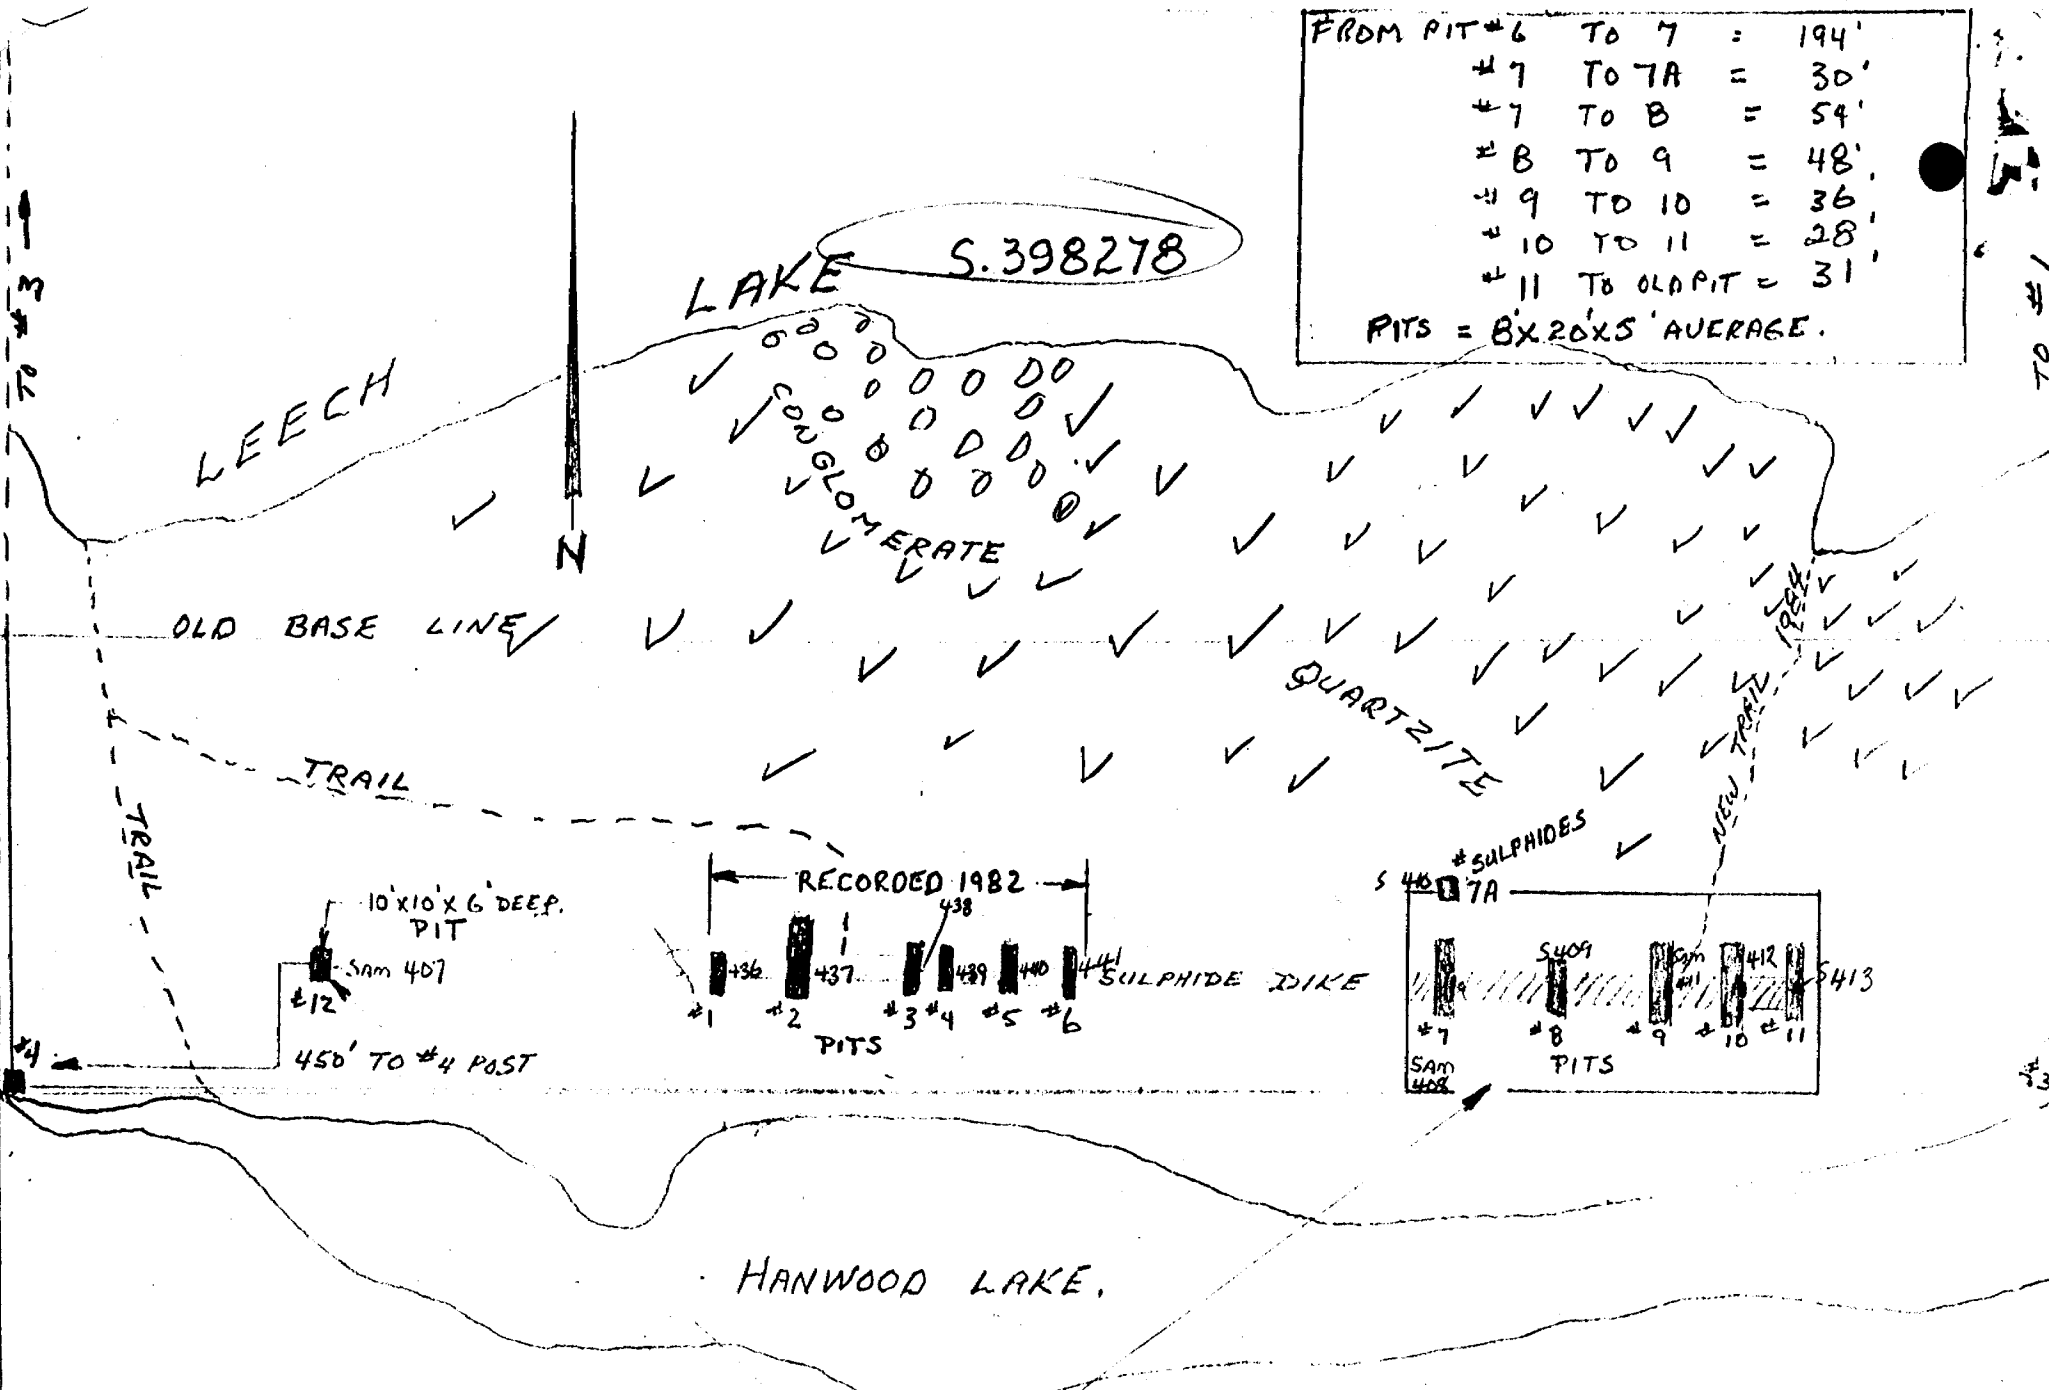 FROM PIT #6 TO 7 = 194'
#7 TO 7A = 30'
#7 TO 8 = 54'
#8 TO 9 = 48'
#9 TO 10 = 36'
#10 TO 11 = 28'
#11 TO OLD PIT = 31'
PITS = 8'X20'X5' AVERAGE.
TO #3
TO #1
S.398278
LEECH LAKE
CONGLOMERATE
N
OLD BASE LINE
QUARTZITE
NEW TRAIL 1984
TRAIL
TRAIL
# SULPHIDES
S 410 7A
RECORDED 1982
10'X10'X6' DEEP.
PIT
SAM 407
#12
450' TO #4 POST
#4
436 437 438 439 440 441
SULPHIDE DIKE
#1 #2 #3 #4 #5 #6
PITS
S409 SAM 411 412 S413
#7 #8 #9 #10 #11
SAM 408
PITS
HANWOOD LAKE.